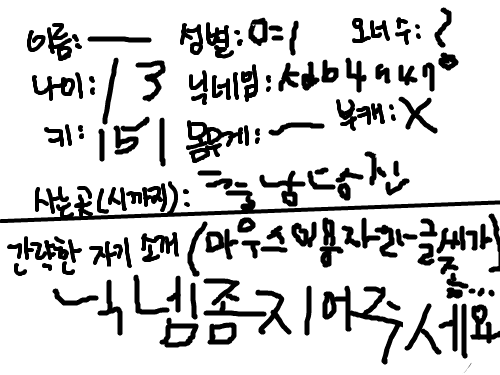 이름: — 성별: 오너 수: ?
나이: 13 닉네임:
키: 151 몸무게: — 부캐: X
사는곳(시까지):
간략한 자기 소개 (마우스이용자라 글씨가
좀...
닉넴좀 지어주세요